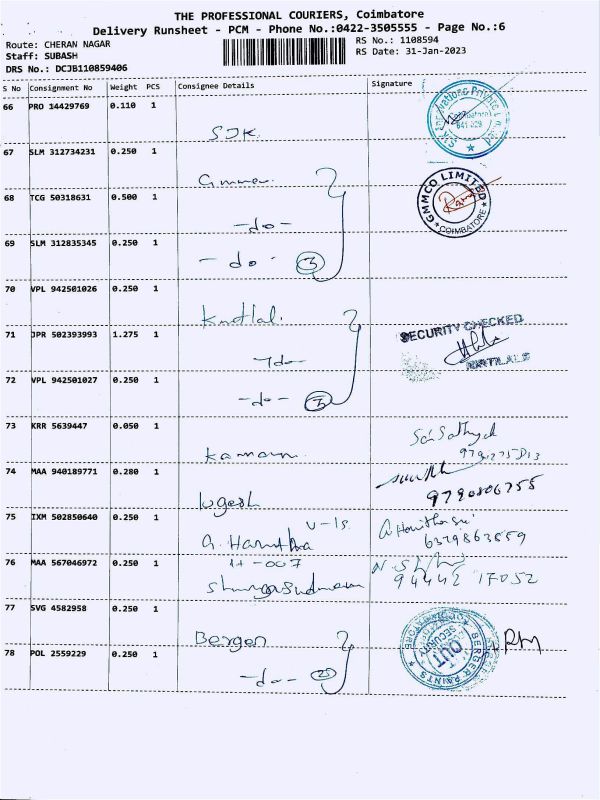 THE PROFESSIONAL COURIERS, Coimbatore
Delivery Runsheet - PCM - Phone No.:0422-3505555 - Page No.:6
Route: CHERAN NAGAR
RS No.: 1108594
Staff: SUBASH
RS Date: 31-Jan-2023
DRS No.: DCJB110859406
S No Consignment No Weight PCS Consignee Details Signature
66 PRO 14429769 0.110 1
SJK.
641 029
67 SLM 312734231 0.250 1
Gmmco
GMMCO LIMITED
COIMBATORE
68 TCG 50318631 0.500 1
-do-
69 SLM 312835345 0.250 1
-do- 3
70 VPL 942501026 0.250 1
SECURITY CHECKED
71 JPR 502393993 1.275 1
-do-
72 VPL 942501027 0.250 1
-do- 3
73 KRR 5639447 0.050 1
74 MAA 940189771 0.280 1
logesh
9790806755
75 IXM 502850640 0.250 1
G. Haritha
6379863559
76 MAA 567046972 0.250 1
H-007
94442 17052
77 SVG 4582958 0.250 1
Berger
BERGER PAINTS
SECURITY
OUT
78 POL 2559229 0.250 1
-do- 2